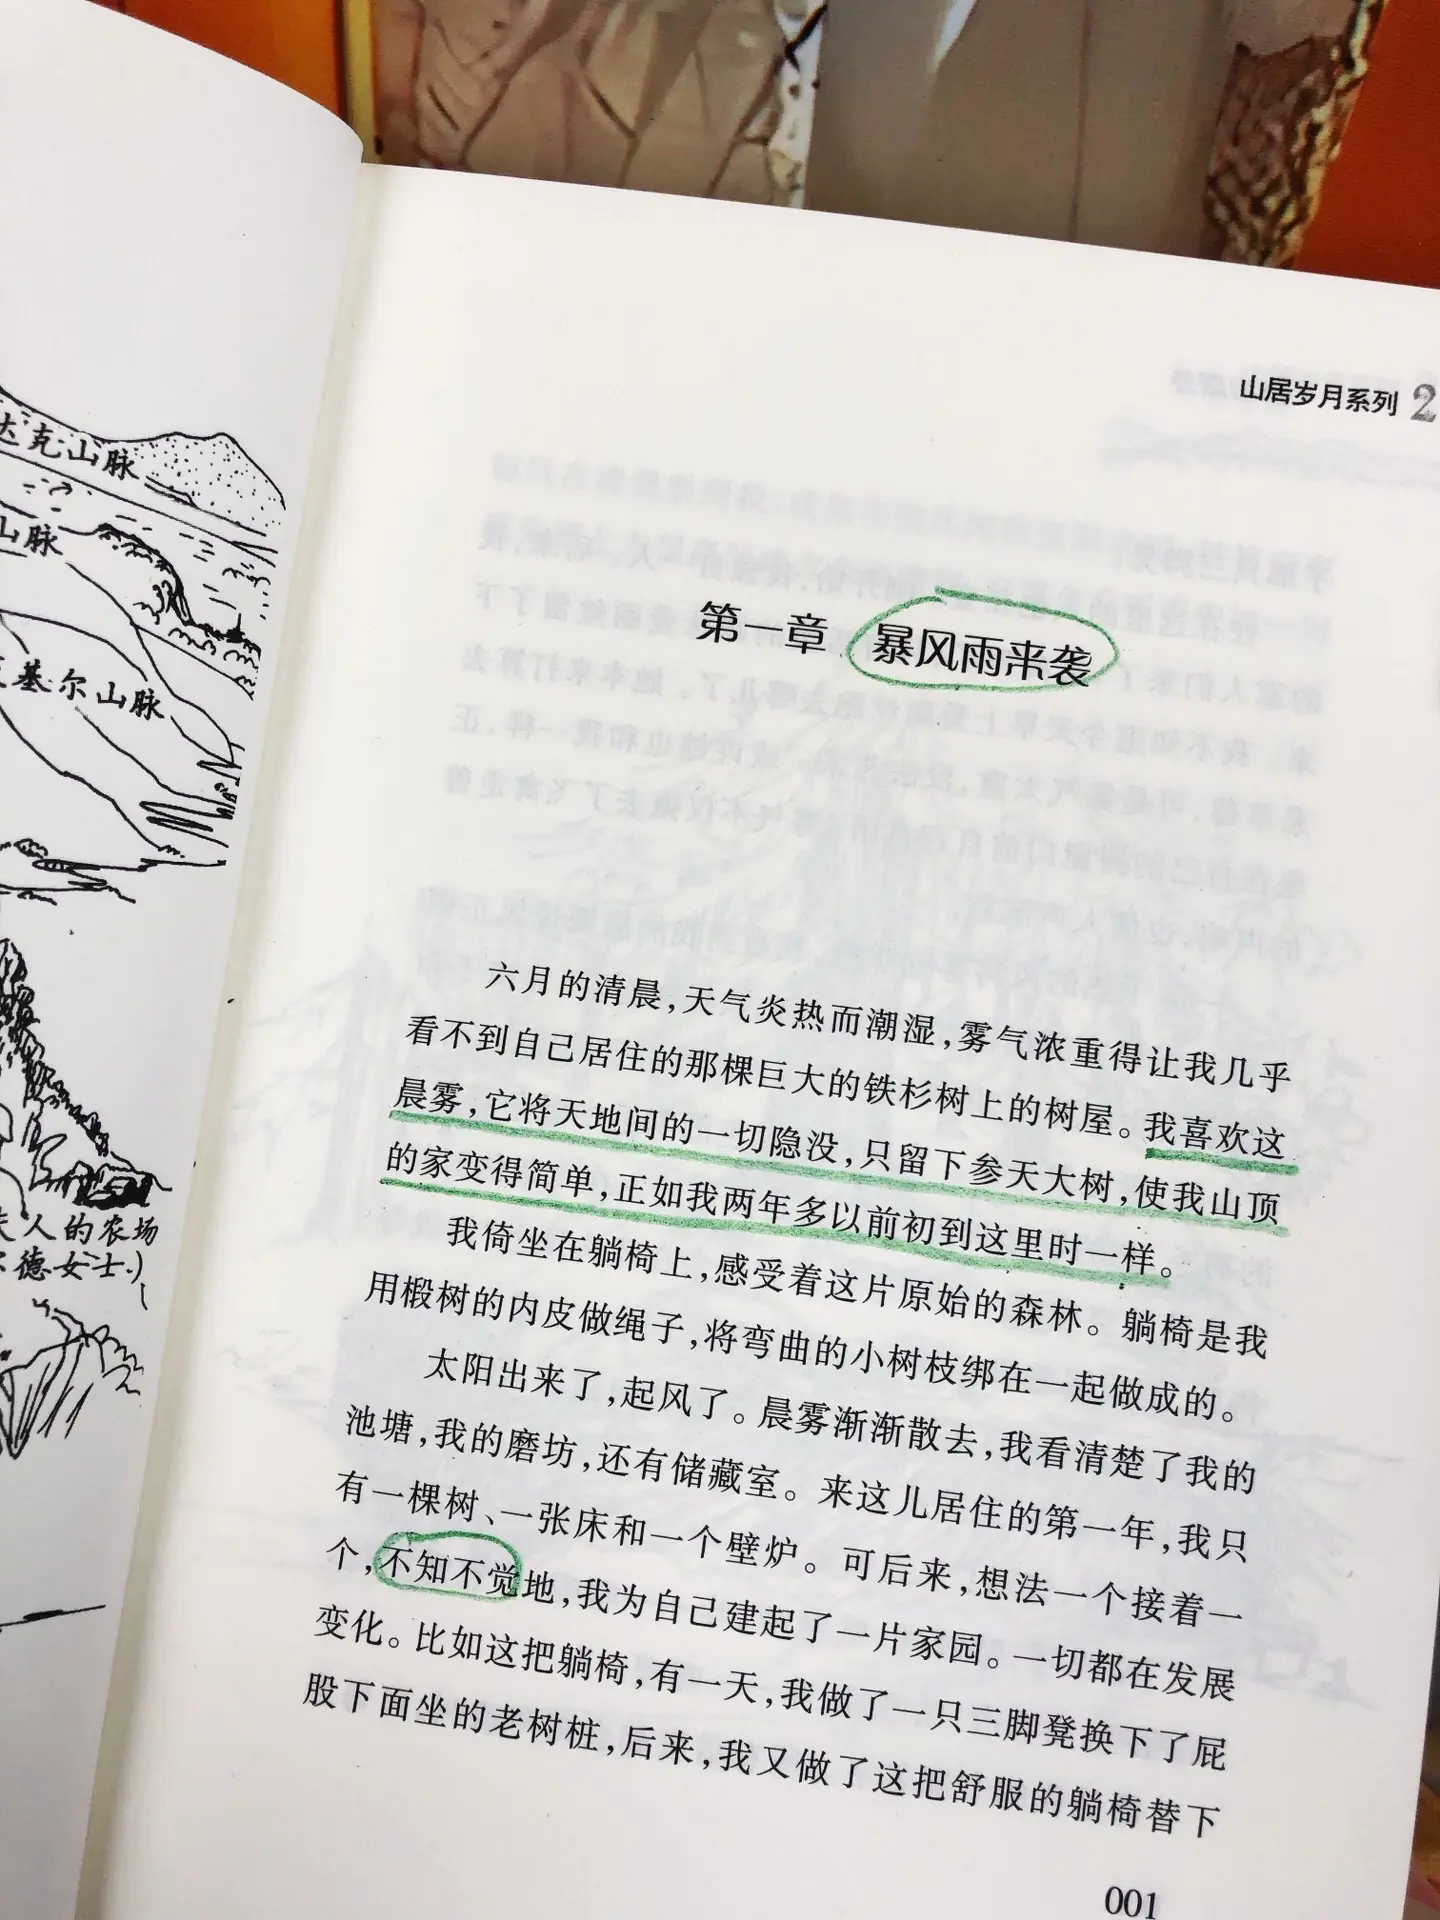 达克山脉
山脉
基尔山脉
夫人的农场
尔德女士.)
山居岁月系列 2
第一章 暴风雨来袭
六月的清晨，天气炎热而潮湿，雾气浓重得让我几乎
看不到自己居住的那棵巨大的铁杉树上的树屋。我喜欢这
晨雾，它将天地间的一切隐没，只留下参天大树，使我山顶
的家变得简单，正如我两年多以前初到这里时一样。
我倚坐在躺椅上，感受着这片原始的森林。躺椅是我
用椴树的内皮做绳子，将弯曲的小树枝绑在一起做成的。
太阳出来了，起风了。晨雾渐渐散去，我看清楚了我的
池塘，我的磨坊，还有储藏室。来这儿居住的第一年，我只
有一棵树、一张床和一个壁炉。可后来，想法一个接着一
个，不知不觉地，我为自己建起了一片家园。一切都在发展
变化。比如这把躺椅，有一天，我做了一只三脚凳换下了屁
股下面坐的老树桩，后来，我又做了这把舒服的躺椅替下
001